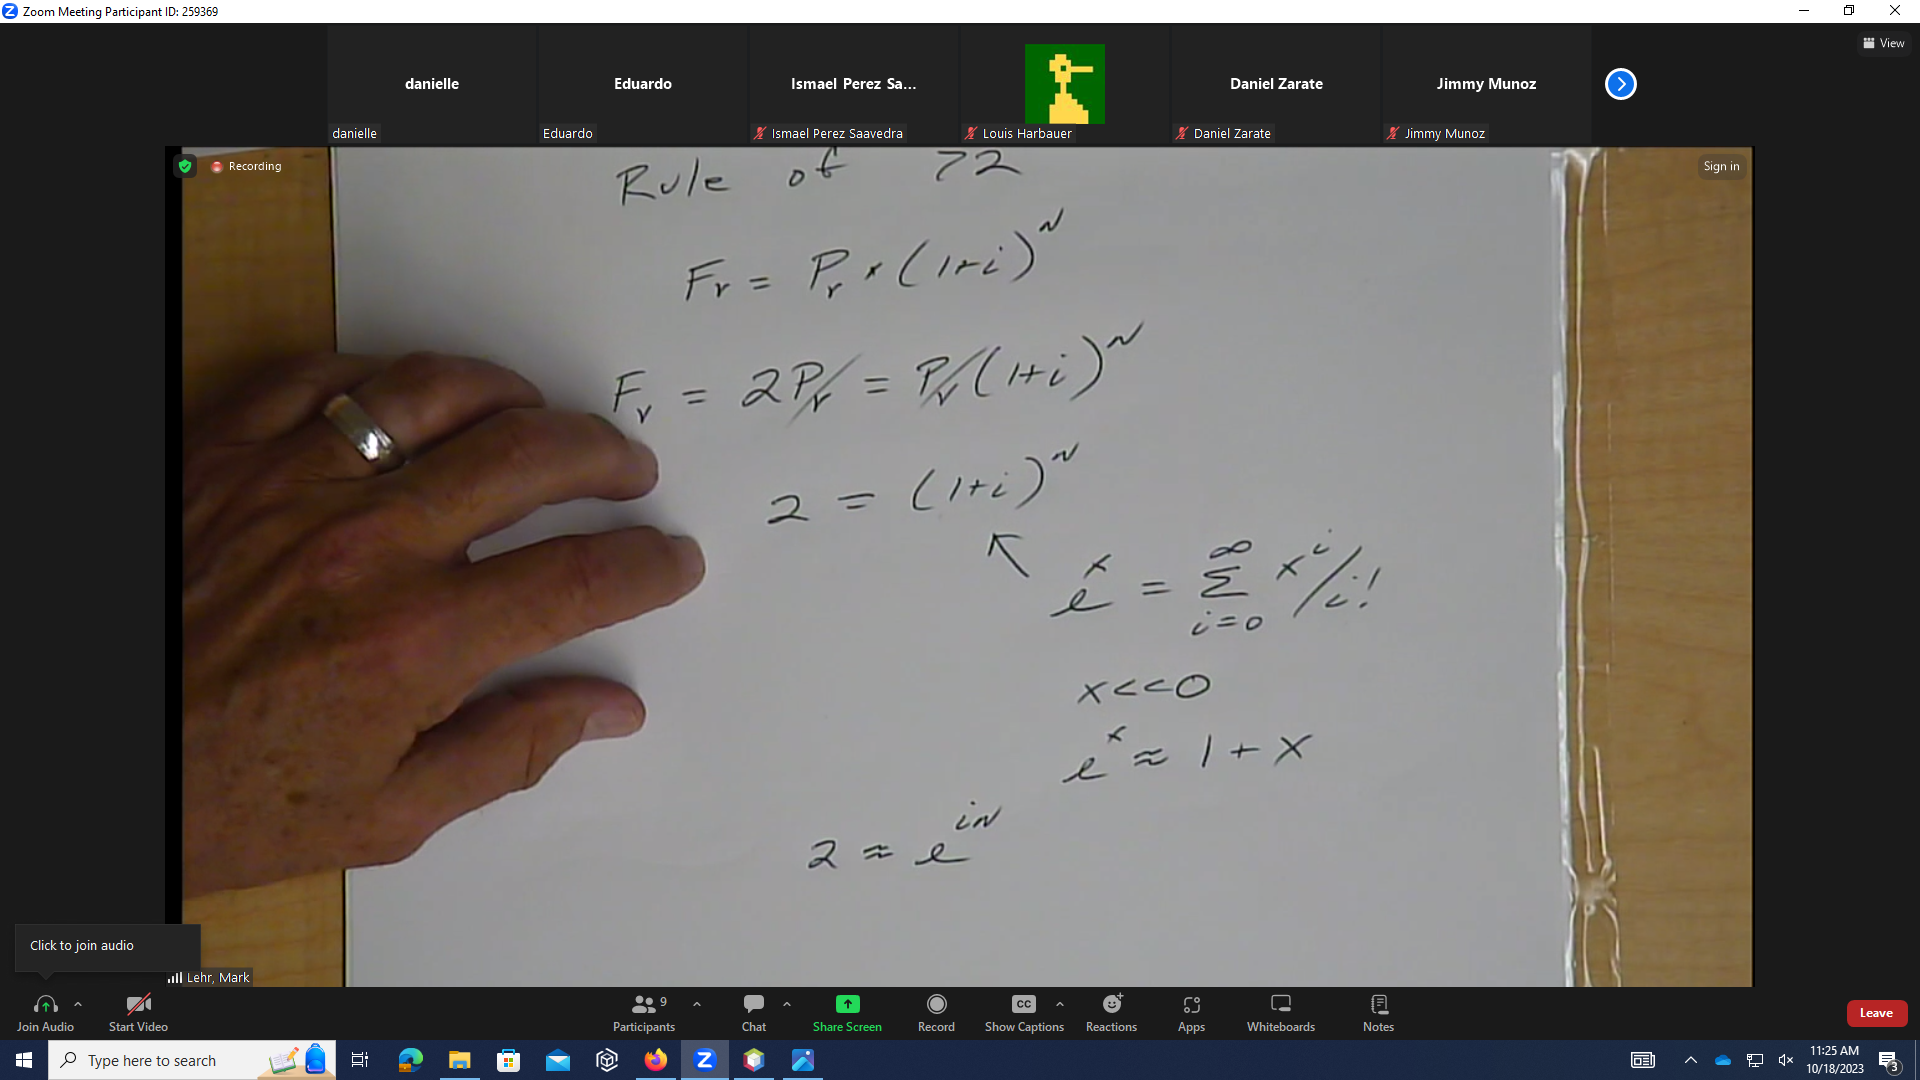 Zoom Meeting Participant ID: 259369
View
danielle
Eduardo
Ismael Perez Sa...
Daniel Zarate
Jimmy Munoz
danielle
Eduardo
Ismael Perez Saavedra
Louis Harbauer
Daniel Zarate
Jimmy Munoz
Recording
Sign in
Rule of 72
Fv = Pv × (1+i)^N
Fv = 2Pv = Pv (1+i)^N
2 = (1+i)^N
e^x = ∑_{i=0}^{∞} x^i/i!
x<<0
e^x ≈ 1 + x
2 ≈ e^{iN}
Click to join audio
Lehr, Mark
Join Audio
Start Video
Participants
9
Chat
Share Screen
Record
CC
Show Captions
Reactions
Apps
Whiteboards
Notes
Leave
Type here to search
11:25 AM
10/18/2023
3